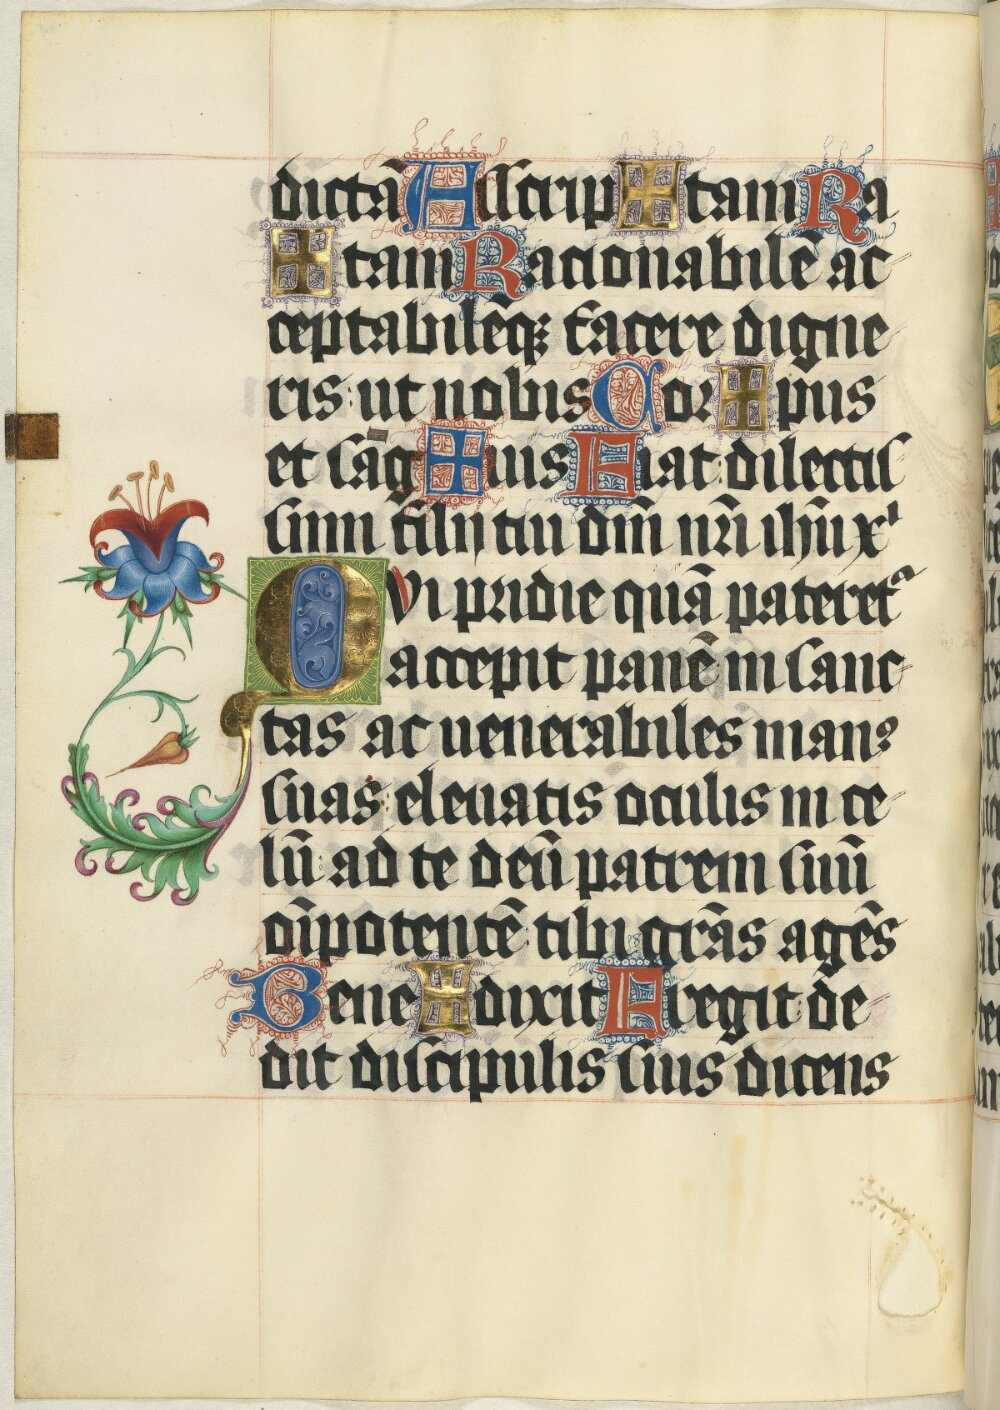 dictā Asscrip ✠ tam Ra
✠ tam Racionabilē ac
ceptabilēqꝫ facere digne
ris ut nobis Cor ✠ pus
et sāg ✠ uis Fiat dilectis
simi filii tui dn̄i nr̄i ihū xͥ
Qvi pridie quā pateret᷑
accepit panē in sanc
tas ac uenerabiles manꝰ
suas eleuatis oculis in ce
lū ad te deū patrem suū
oīpotentē tibi gr̄as agēs
Bene ✠ dixit Fregit de
dit discipulis suis dicens